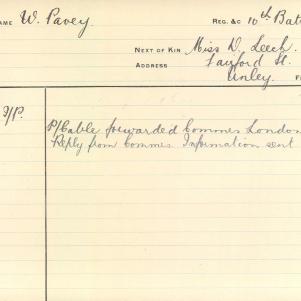 NAME W. Pavey REG. &c 10th Bat
NEXT OF KIN Miss D. Leech.
ADDRESS Fairford St.
Unley.
P/Cable forwarded Commes London
Reply from Commes. Information sent